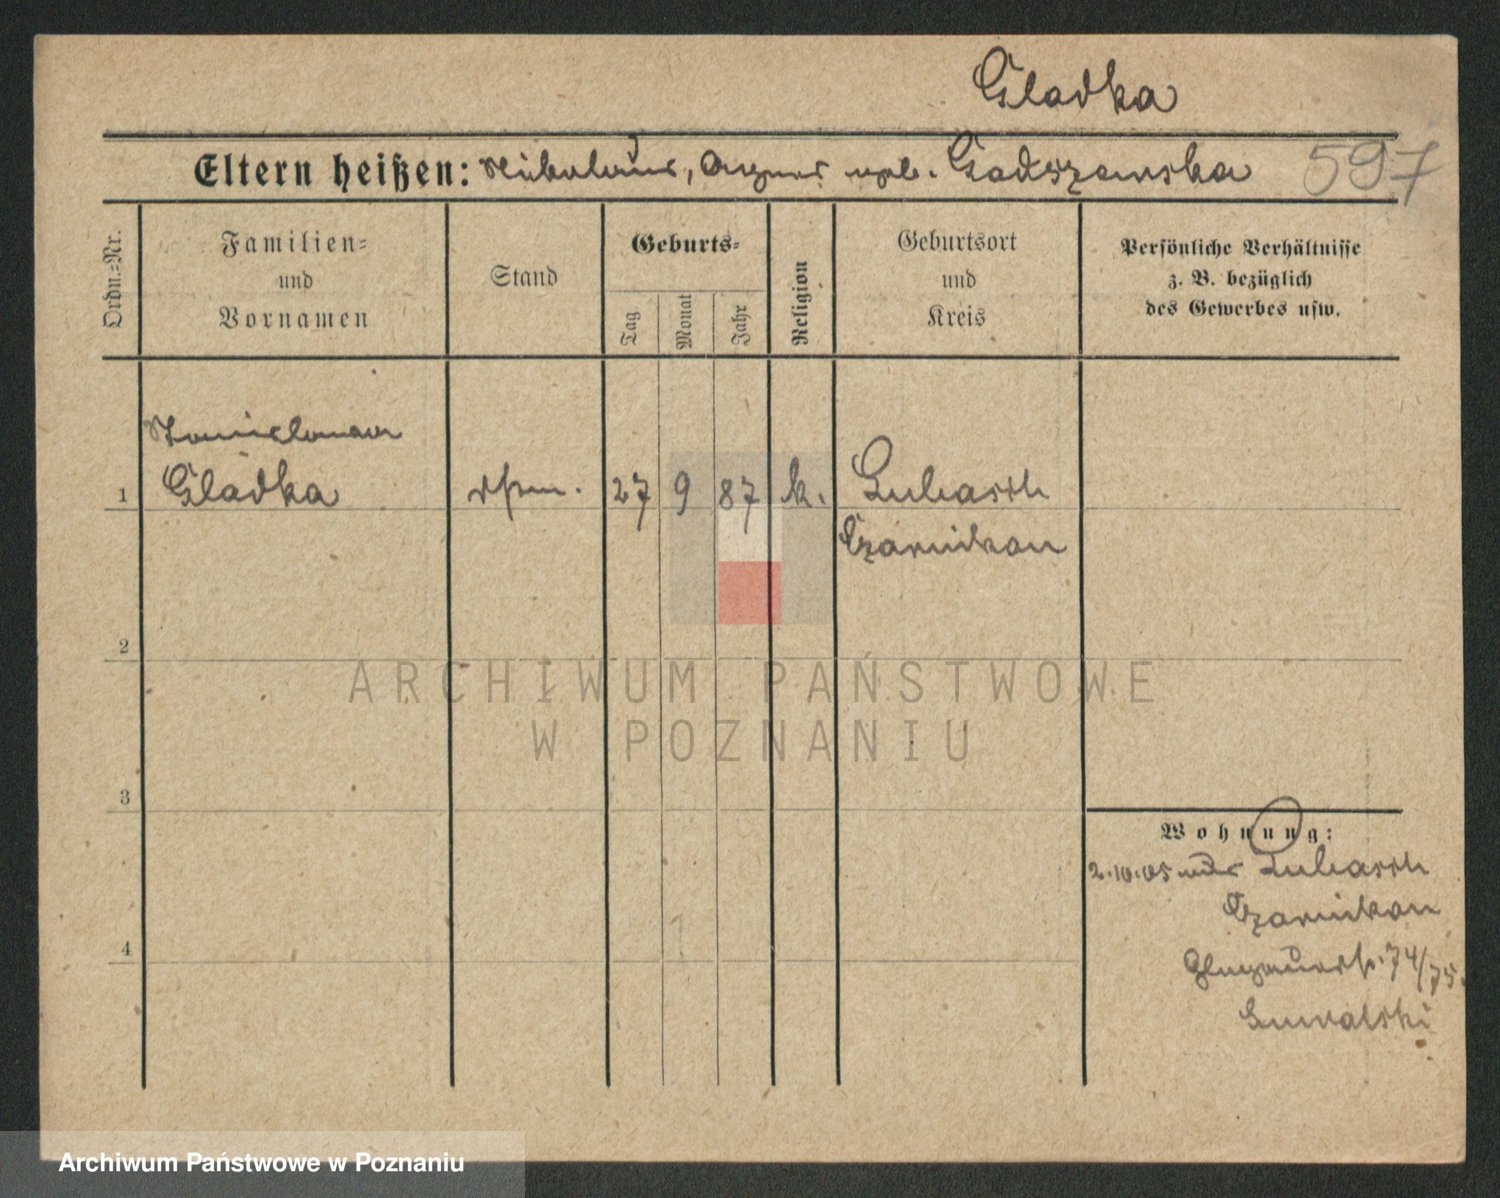 Gladka
Eltern heißen: Nikolaus, Agnes geb. Gadszewska 597
Ordn.=Nr.
Familien=
und
Vornamen
Stand
Geburts=
Tag
Monat
Jahr
Religion
Geburtsort
und
Kreis
Persönliche Verhältnisse
z. B. bezüglich
des Gewerbes usw.
Stanislawa
1 Gladka 27 9 87 k. Lubasch
Czarnikau
2
3
4
Wohnung:
2.10.05 aus Lubasch
Czarnikau
Glogauerstr. 74/75.
ARCHIWUM PAŃSTWOWE
W POZNANIU
Archiwum Państwowe w Poznaniu